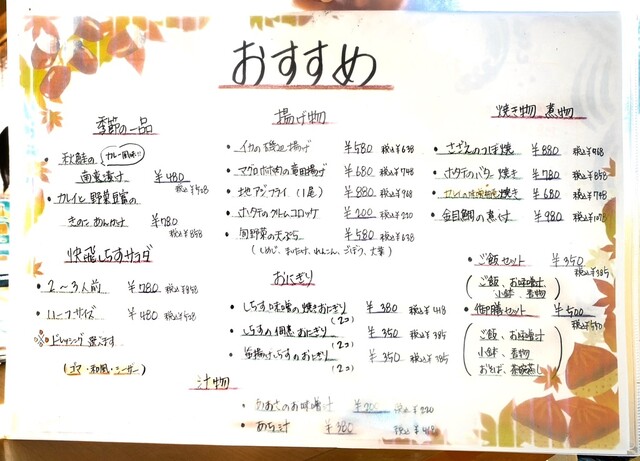 おすすめ
季節の一品
・秋鮭の(カレー風味!!)
南蛮漬け ¥480
税込¥528
・カレイと野菜豆富の
きのこあんかけ ¥780
税込¥858
快飛しらすサラダ
・2〜3人前 ¥780 税込¥858
・ハーフサイズ ¥480 税込¥528
※ドレッシング選べます
(ゴマ・和風・シーザー)
揚げ物
・イカの磯辺揚げ ¥580 税込¥638
・マグロホホ肉の竜田揚げ ¥680 税込¥748
・地アジフライ(1尾) ¥880 税込¥968
・ホタテのクリームコロッケ ¥200 税込¥220
・旬野菜の天ぷら ¥580 税込¥638
(しめじ、まいたけ、れんこん、ごぼう、大葉)
おにぎり
・しらす味噌の焼きおにぎり ¥380 税込¥418
(2コ)
・しらすの佃煮おにぎり ¥350 税込¥385
(2コ)
・釜揚げしらすのおにぎり ¥350 税込¥385
(2コ)
汁物
・あおさのお味噌汁 ¥200 税込¥220
・あら汁 ¥380 税込¥418
焼き物 煮物
・さざえのつぼ焼 ¥880 税込¥968
・ホタテのバター焼き ¥780 税込¥858
焼き ¥680 税込¥748
・金目鯛の煮付 ¥980 税込¥1078
・ご飯セット ¥350
税込¥385
(ご飯、お味噌汁
小鉢、煮物)
・御膳セット ¥500
税込¥550
(ご飯、お味噌汁
小鉢、煮物
おそば、茶碗蒸し)